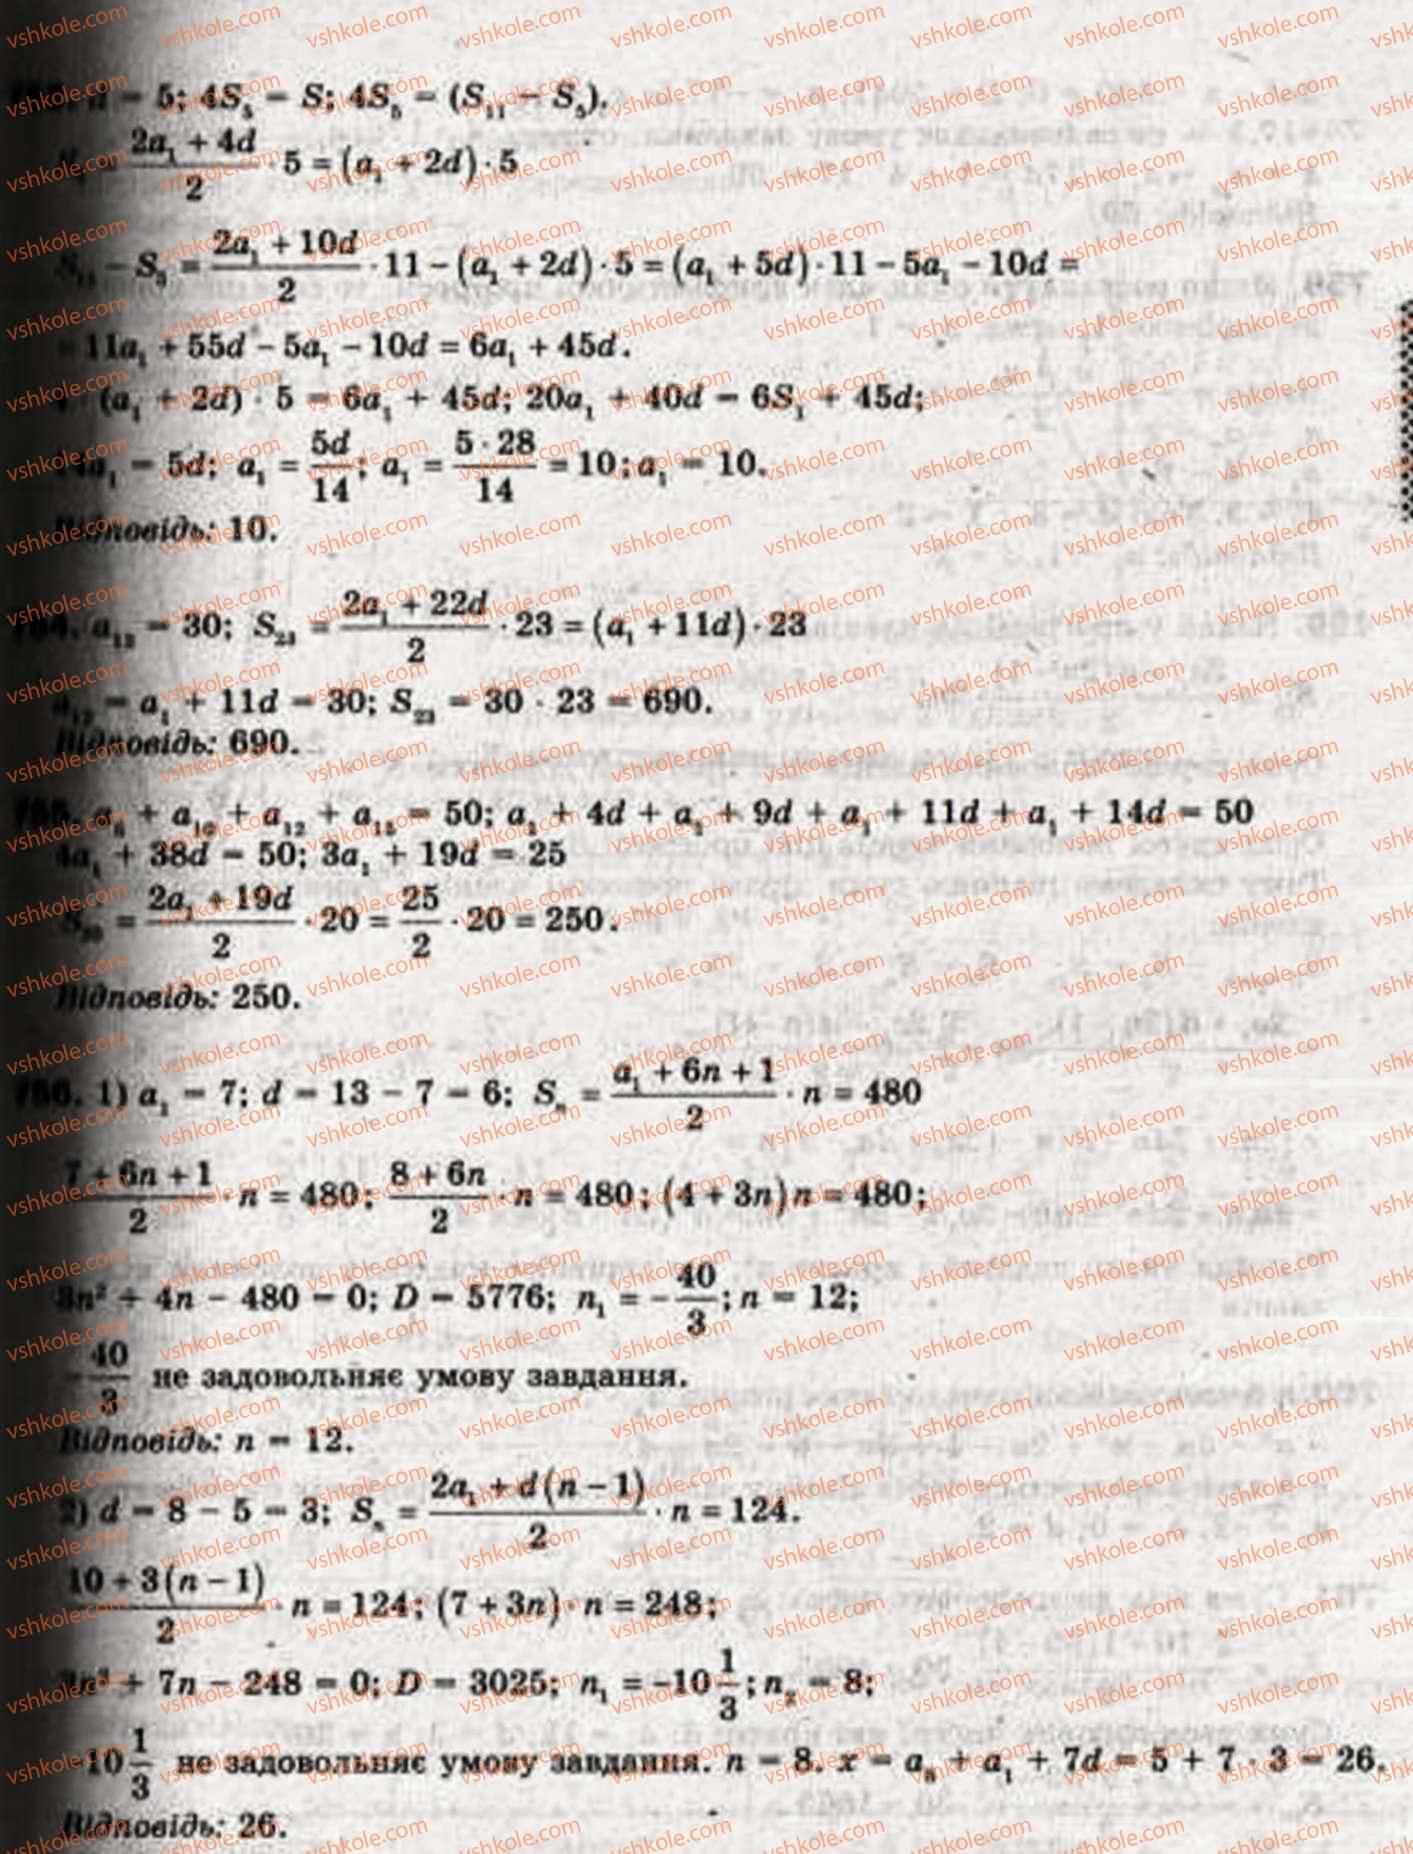 = 5; 4S₅ = S; 4S₅ = (S₁₁ − S₅).
(2a₁ + 4d)/2 · 5 = (a₁ + 2d) · 5
S₁₁ − S₅ = (2a₁ + 10d)/2 · 11 − (a₁ + 2d) · 5 = (a₁ + 5d) · 11 − 5a₁ − 10d =
= 11a₁ + 55d − 5a₁ − 10d = 6a₁ + 45d.
(a₁ + 2d) · 5 = 6a₁ + 45d; 20a₁ + 40d = 6S₁ + 45d;
14a₁ = 5d; a₁ = 5d/14; a₁ = (5 · 28)/14 = 10; a₁ = 10.
Відповідь: 10.
754. a₁₂ = 30; S₂₃ = (2a₁ + 22d)/2 · 23 = (a₁ + 11d) · 23
a₁₂ = a₁ + 11d = 30; S₂₃ = 30 · 23 = 690.
Відповідь: 690.
755. a₅ + a₁₀ + a₁₂ + a₁₅ = 50; a₁ + 4d + a₁ + 9d + a₁ + 11d + a₁ + 14d = 50
4a₁ + 38d = 50; 3a₁ + 19d = 25
S₂₀ = (2a₁ + 19d)/2 · 20 = 25/2 · 20 = 250.
Відповідь: 250.
756. 1) a₁ = 7; d = 13 − 7 = 6; Sₙ = (a₁ + 6n + 1)/2 · n = 480
(7 + 6n + 1)/2 · n = 480; (8 + 6n)/2 · n = 480; (4 + 3n)n = 480;
3n² + 4n − 480 = 0; D = 5776; n₁ = −40/3; n = 12;
40/3 не задовольняє умову завдання.
Відповідь: n = 12.
2) d = 8 − 5 = 3; Sₙ = (2a₁ + d(n − 1))/2 · n = 124.
(10 + 3(n − 1))/2 · n = 124; (7 + 3n) · n = 248;
3n² + 7n − 248 = 0; D = 3025; n₁ = −10 1/3; n₂ = 8;
10 1/3 не задовольняє умову завдання. n = 8. x = a₈ + a₁ + 7d = 5 + 7 · 3 = 26.
Відповідь: 26.